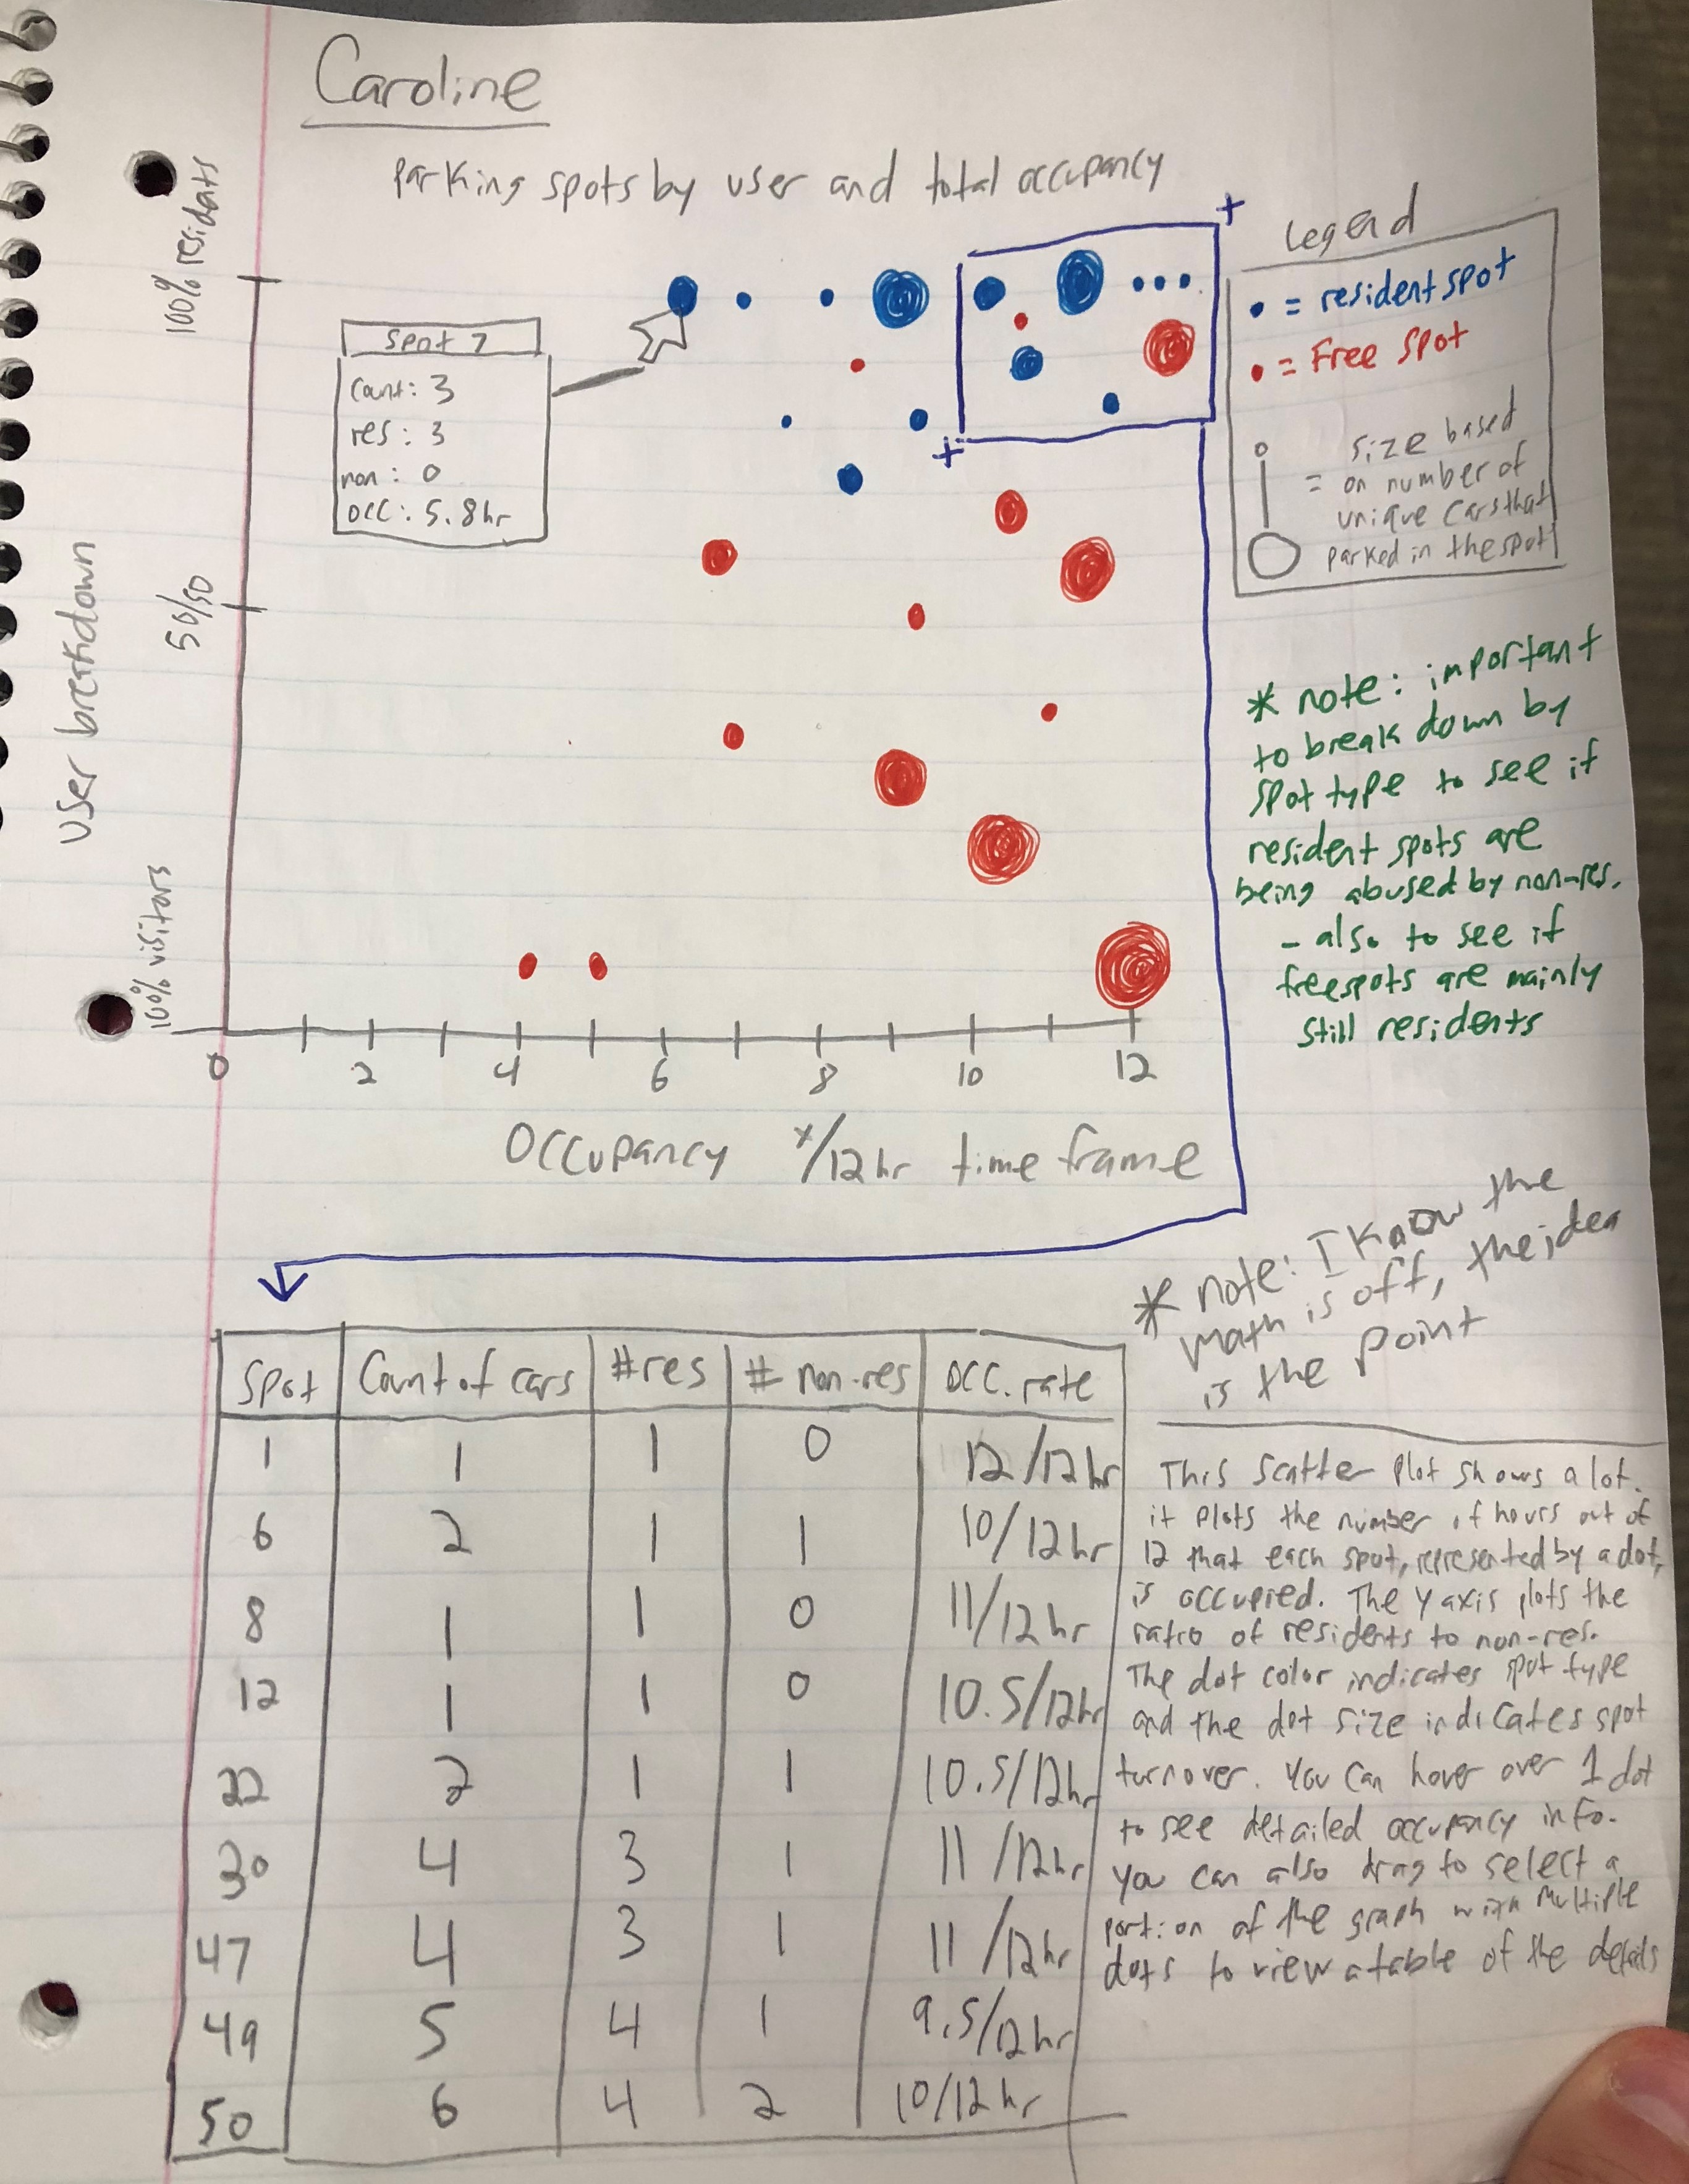 Caroline
Parking spots by user and total occupancy
100% residats
50/50
100% visitors
User breakdown
Spot 7
Count: 3
res: 3
non: 0
occ: 5.8hr
Legend
• = resident spot
• = Free Spot
= size based
on number of
unique cars that
parked in the spot
* note: important
to break down by
spot type to see if
resident spots are
being abused by non-res.
- also to see if
freespots are mainly
still residents
0 2 4 6 8 10 12
Occupancy x/12hr time frame
* note: I know the
math is off, the idea
is the point
Spot | Count of cars | #res | # non-res | Occ. rate
1 | 1 | 1 | 0 | 12/12hr
6 | 2 | 1 | 1 | 10/12hr
8 | 1 | 1 | 0 | 11/12hr
12 | 1 | 1 | 0 | 10.5/12hr
22 | 2 | 1 | 1 | 10.5/12hr
30 | 4 | 3 | 1 | 11/12hr
47 | 4 | 3 | 1 | 11/12hr
49 | 5 | 4 | 1 | 9.5/12hr
50 | 6 | 4 | 2 | 10/12hr
This scatter plot shows a lot.
it plots the number of hours out of
12 that each spot, represented by a dot,
is occupied. The y axis plots the
ratio of residents to non-res.
The dot color indicates spot type
and the dot size indicates spot
turnover. You can hover over 1 dot
to see detailed occupancy info.
you can also drag to select a
portion of the graph with multiple
dots to view a table of the details